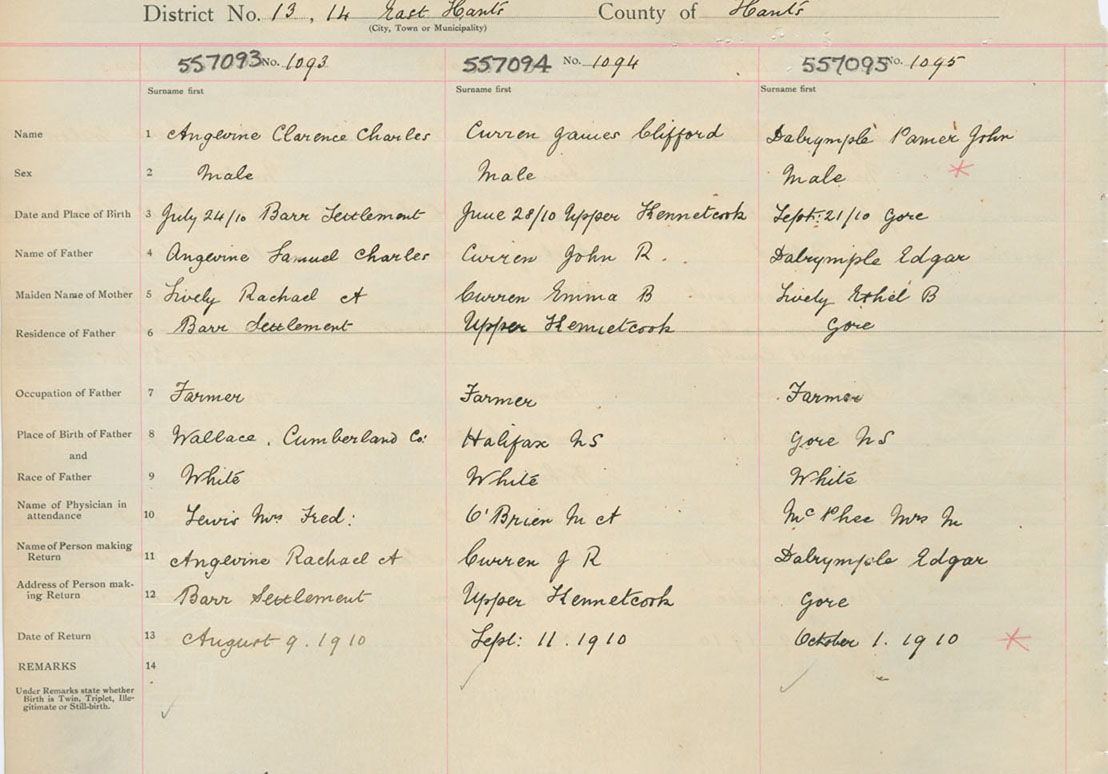 District No. 13, 14 East Hants County of Hants
(City, Town or Municipality)
557093 No. 1093 557094 No. 1094 557095 No. 1095
Surname first Surname first Surname first
Name 1 Angevine Clarence Charles Curren James Clifford Dalrymple Palmer John
Sex 2 Male Male Male
Date and Place of Birth 3 July 24/10 Barr Settlement June 28/10 Upper Kennetcook Sept: 21/10 Gore
Name of Father 4 Angevine Samuel Charles Curren John R. Dalrymple Edgar
Maiden Name of Mother 5 Lively Rachael A Curren Emma B Lively Ethel B
Residence of Father 6 Barr Settlement Upper Kennetcook Gore
Occupation of Father 7 Farmer Farmer Farmer
Place of Birth of Father 8 Wallace, Cumberland Co: Halifax NS Gore NS
and
Race of Father 9 White White White
Name of Physician in
attendance 10 Lewis Mrs Fred: O'Brien M A McPhee Mrs M
Name of Person making
Return 11 Angevine Rachael A Curren J R Dalrymple Edgar
Address of Person mak-
ing Return 12 Barr Settlement Upper Kennetcook Gore
Date of Return 13 August 9. 1910 Sept: 11. 1910 October 1. 1910
REMARKS 14
Under Remarks state whether
Birth is Twin, Triplet, Ille-
gitimate or Still-birth.